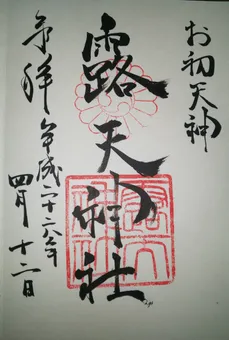 お初天神
露天神社
奉拝
平成二十六年
四月十二日